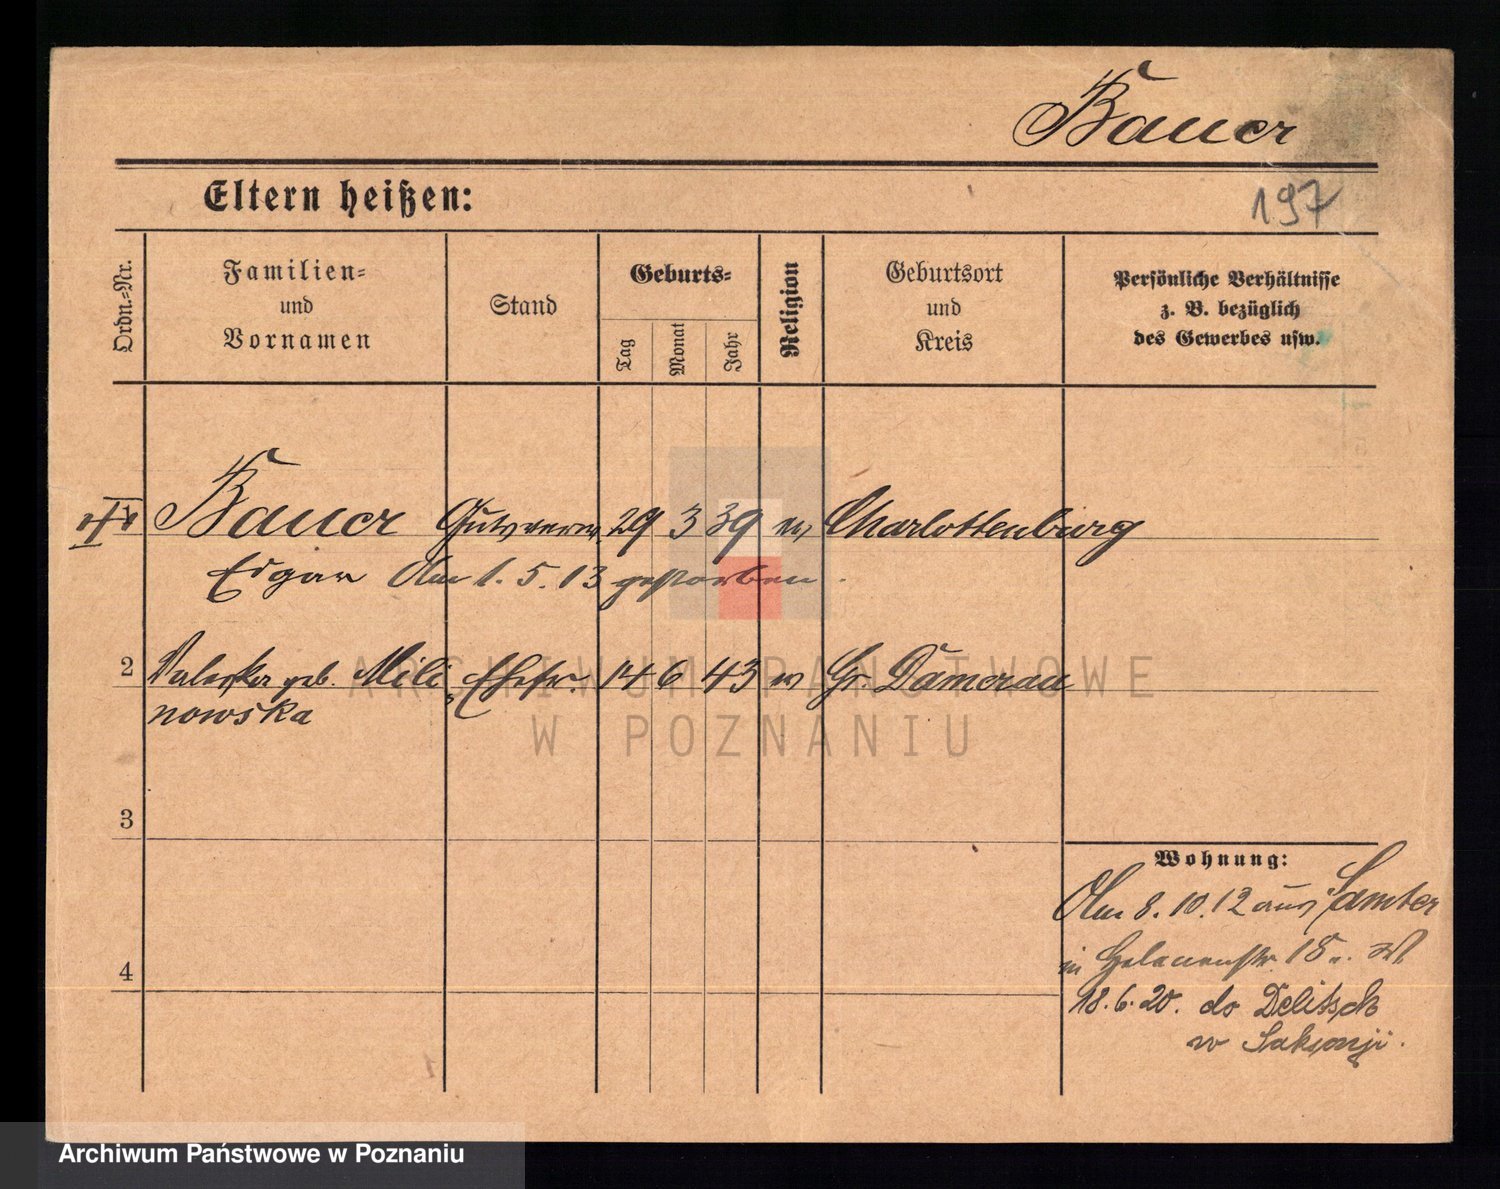 Bauer
Eltern heißen:
197
Ordn.=Nr.
Familien=
und
Vornamen
Stand
Geburts=
Tag
Monat
Jahr
Religion
Geburtsort
und
Kreis
Persönliche Verhältnisse
z. B. bezüglich
des Gewerbes usw.
Bauer Gutsverw. 29 3 39 ev Charlottenburg
Edgar Am 1. 5. 13 gestorben.
2 Valeska geb. Mili Ehefr. 14 6 43 ev Gr. Damerau
nowska
3
Wohnung:
Am 8. 10. 12 aus Samter
in Helenenstr. 18
4
18. 6. 20. do Delitsch
w Saksonji.
ARCHIWUM PAŃSTWOWE
W POZNANIU
Archiwum Państwowe w Poznaniu